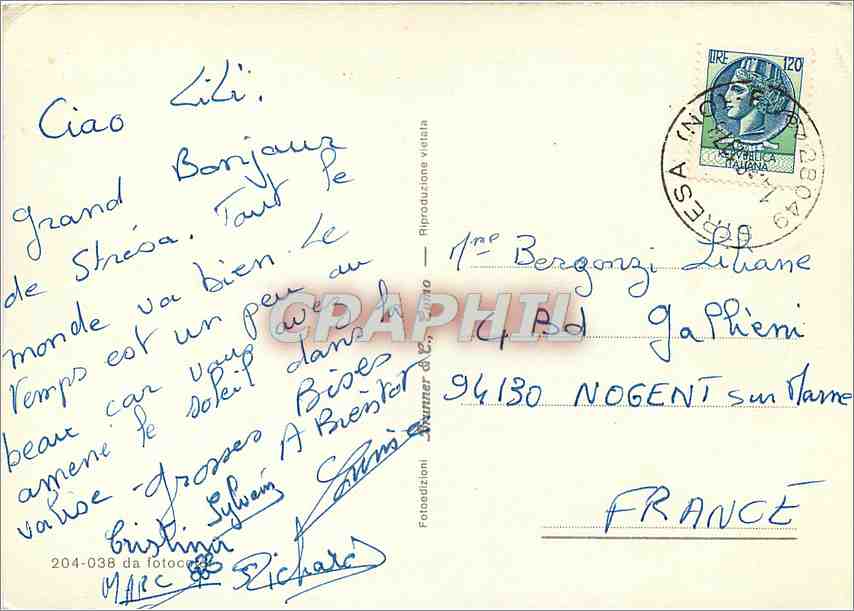 Ciao LiLi.
Grand Bonjour
de Strésa. Tout le
monde va bien. Le
temps est un peu au
beau car vous avez
amené le soleil dans la
valise - Grosses Bises
A Bientôt
Sylvain
Louise
Cristina
MARC
Richard
204-038 da fotocolor
Fotoedizioni Brunner & C., Como — Riproduzione vietata
CPAPHIL
LIRE 120
REPVBBLICA
ITALIANA
28049 STRESA (NO)
Mme Bergonzi Liliane
4 Bd Gallieni
94130 NOGENT sur Marne
FRANCE